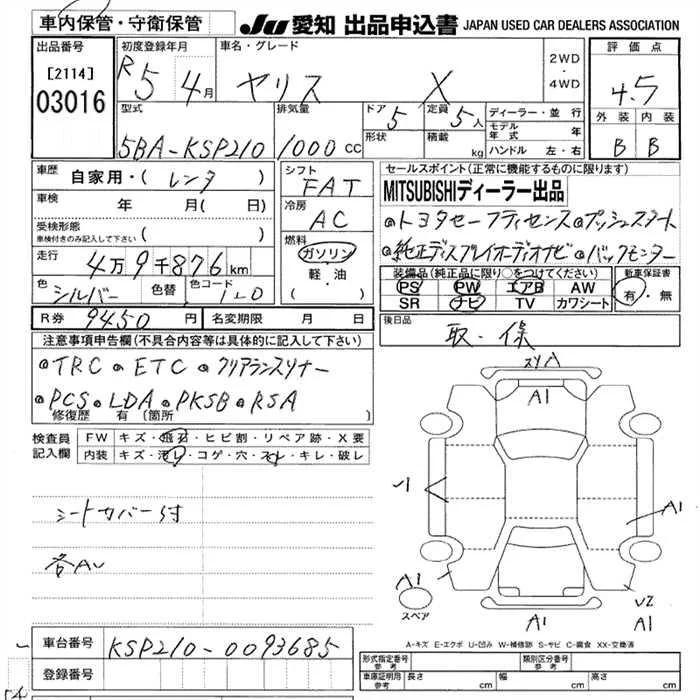 車内保管・守衛保管
JU 愛知 出品申込書 JAPAN USED CAR DEALERS ASSOCIATION
出品番号
[2114]
03016
初度登録年月
R5 4月
車名・グレード
ヤリス X
2WD
・
4WD
評価点
4.5
外装 内装
B B
型式
5BA-KSP210
排気量
1000 CC
ドア 5
形状
定員 5人
積載 kg
ディーラー・並行
モデル年式 年
ハンドル 左・右
車歴
自家用・( レンタ )
車検
年 月( 日)
受検形態
車検付きのみ記入して下さい ( )
走行
4万9千876km
色 シルバー
色替
色コード 1L0
シフト
FAT
冷房
AC
燃料
ガソリン
軽・油
( )
セールスポイント(正常に機能するものに限ります)
MITSUBISHIディーラー出品
●トヨタセーフティセンス●プッシュスタート
●純正ディスプレイオーディオナビ●バックモニター
装備品(純正品に限り○をつけてください)
PS PW エアB AW
SR ナビ TV カワシート
新車保証書
有・無
R券 9450 円
名変期限 月 日
後日品
取・保
注意事項申告欄(不具合内容等は具体的に記入して下さい)
●TRC ●ETC ●クリアランスソナー
●PCS ●LDA ●PKSB ●RSA
修復歴 有 〔箇所 〕
検査員
記入欄
FW キズ・飛石・ヒビ割・リペア跡・X要
内装 キズ・汚レ・コゲ・穴・スレ・キレ・破レ
シートカバー付
各AU
スリA
A1
A1
A1
スペア
A1
U2
A1
A-キズ E-エクボ U-凹み W-補修跡 S-サビ C-腐食 XX-交換済
車台番号
KSP210-0093685
登録番号
形式指定番号
参考
類別区分番号
参考
車庫証明用
参考
長さ cm 幅 cm 高さ cm